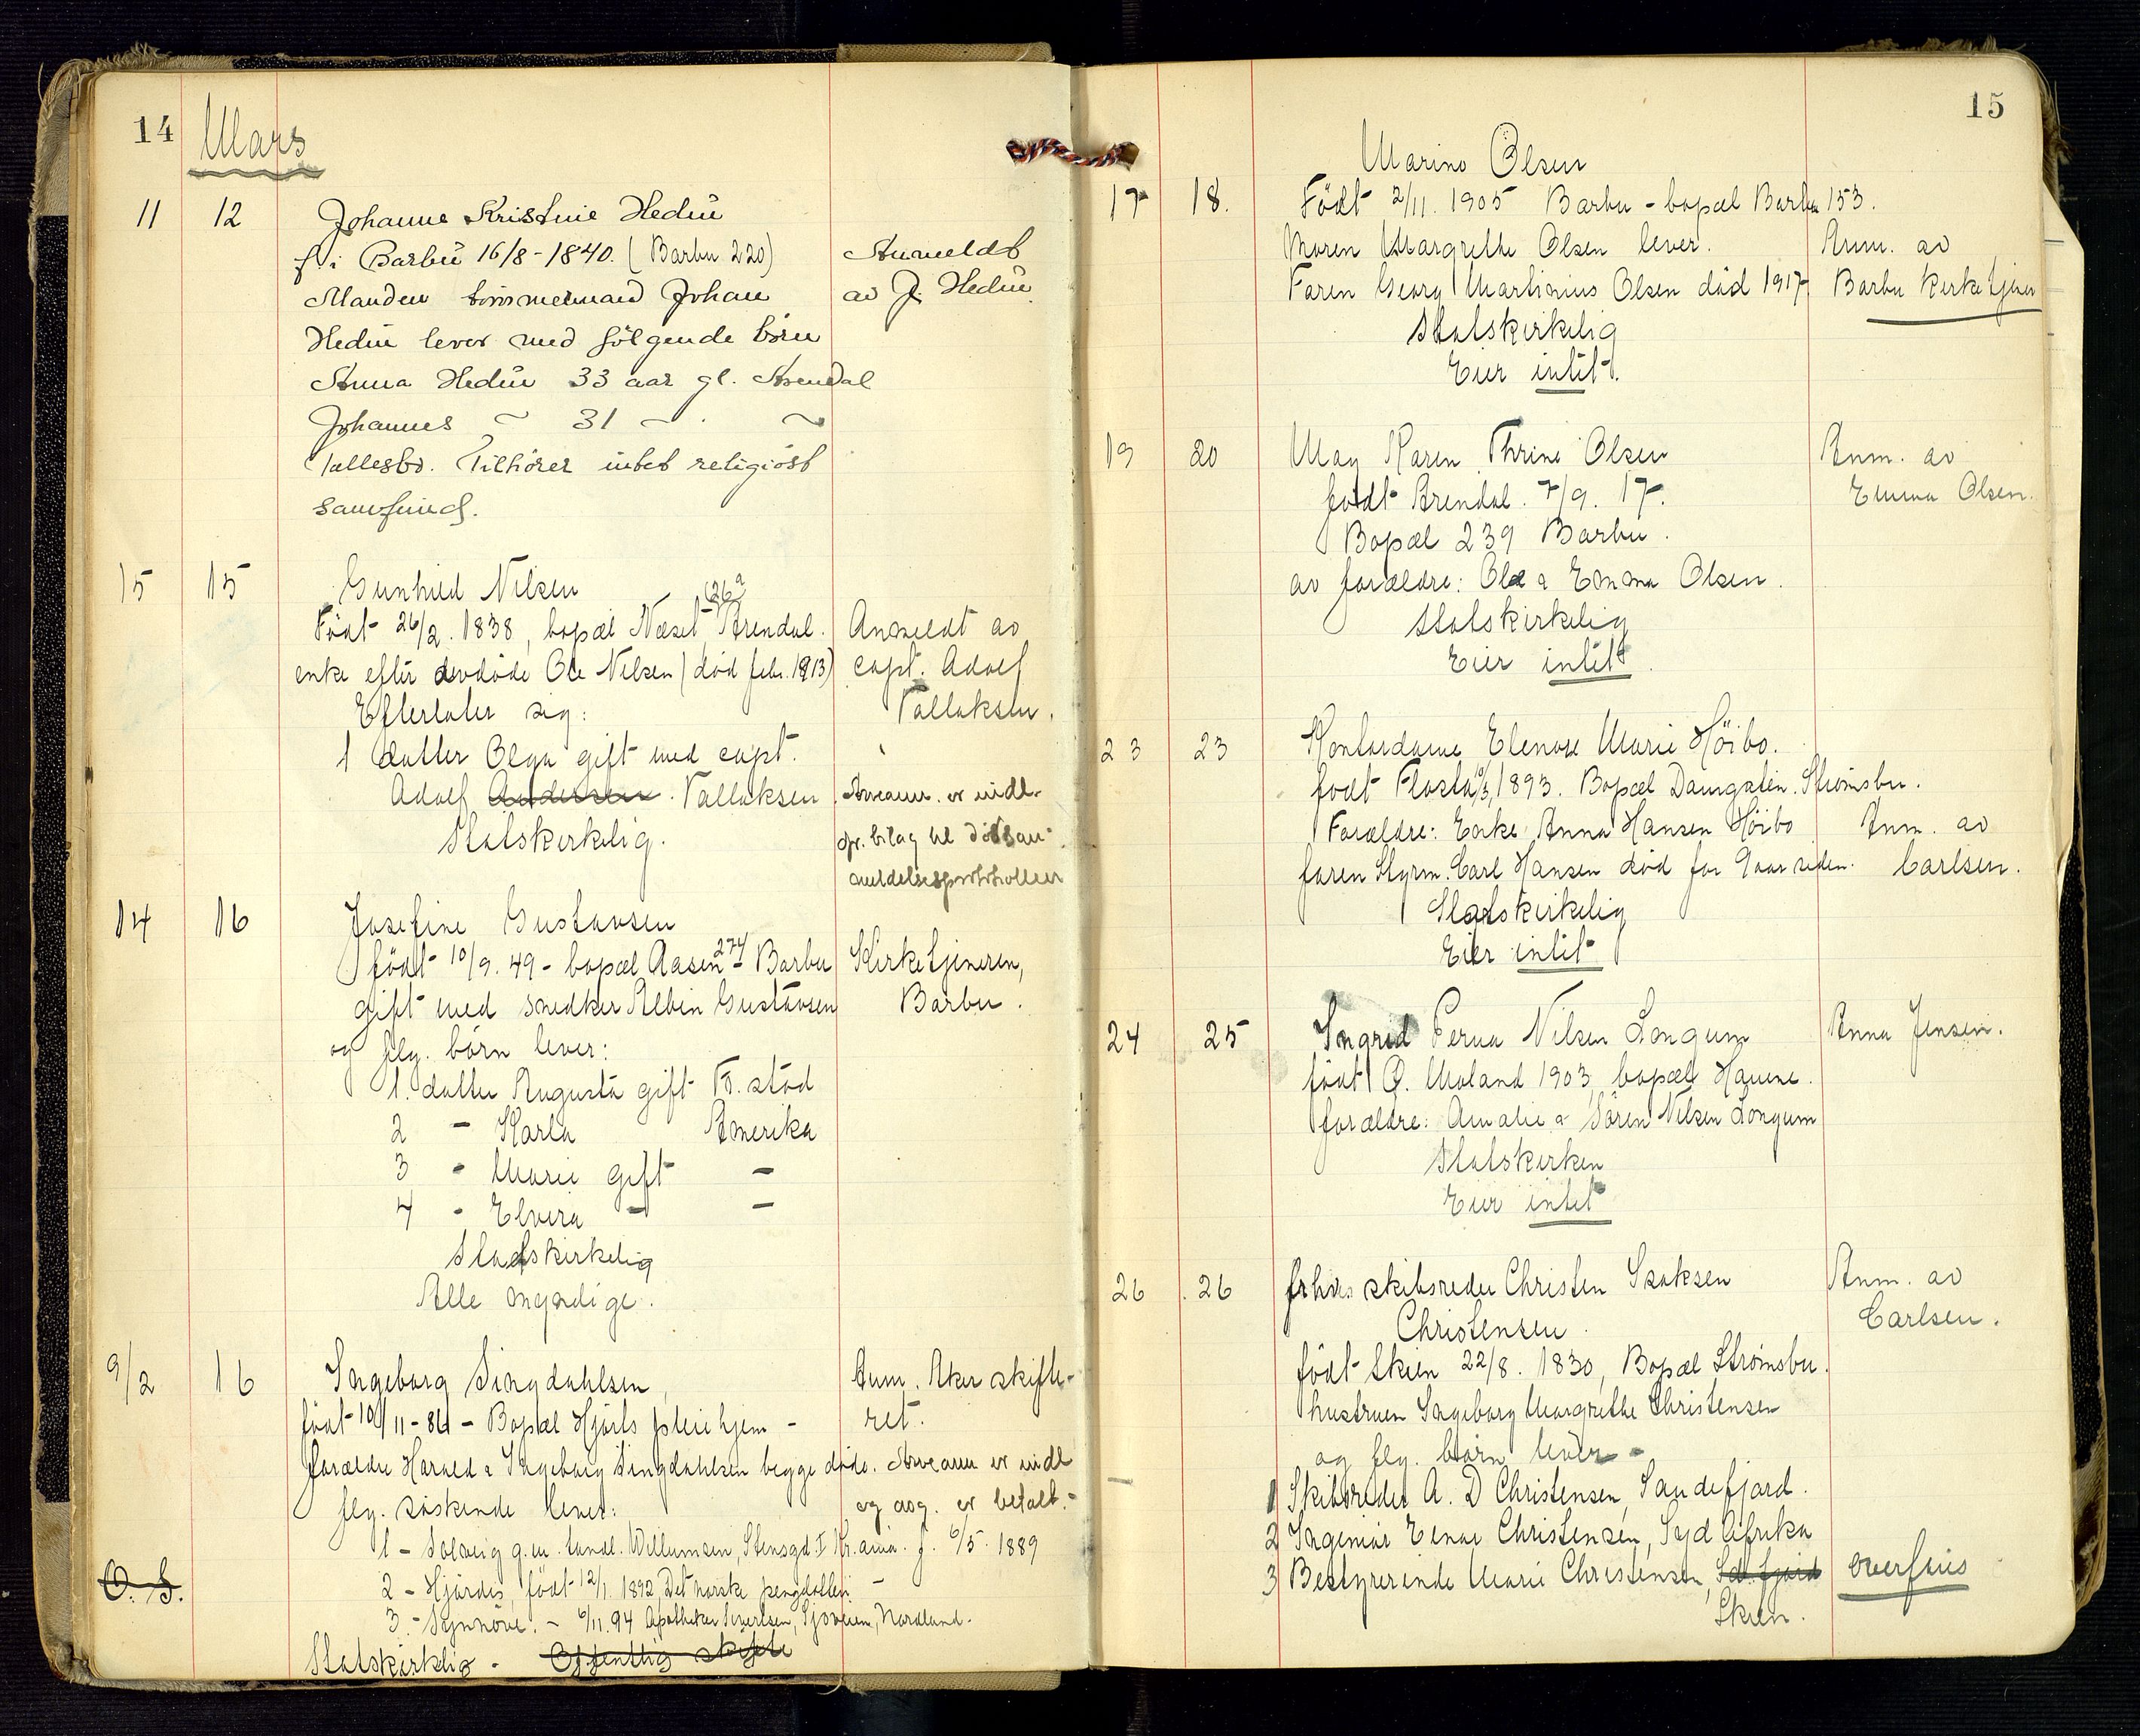 14 Mars
11 12 Johanne Kristine Hedin
f. i Barbu 16/8-1840. (Barbu 220) Anmeldt
Manden tømmermand Johan av J. Hedin
Hedin lever med følgende børn
Anna Hedin 33 aar gl. Arendal
Johannes ~ 31 ~ ~
Fællesbo. Tilhører intet religiøst
samfund.
15 15 Gunhild Nilsen
Født 26/2. 1838, bopæl Næset Arendal. Anmeldt av
enke efter avdøde Ole Nilsen (død febr. 1913) capt. Adolf
Efterlater sig: Tallaksen.
1 datter Olga gift med capt.
Adolf Andersen Tallaksen. Arveanm. er indl.
Statskirkelig. fr. bilag til dødsan-
meldelsesprotokollen
14 16 Josefine Gustavsen
født 10/9. 49 - bopæl Aasen 274 - Barbu Kirketjeneren,
gift med snedker Albin Gustavsen Barbu.
og flg. børn lever:
1. datter Augusta gift Fr.stad
2 - Karla Amerika
3 - Marie gift -
4 - Elvira - -
Statskirkelig
Alle myndige.
9/2 16 Ingeborg Singdahlsen, Anm. Aker skifte-
født 10/11-86 - Bopæl Hjørts pleiehjem - ret.
forældre Harald & Ingeborg Singdahlsen begge døde. Arveanm er indl
flg. søskende lever: og avg. er betalt.-
1 - Solveig g.m. tandl. Willumsen, Stensgd. I Kr.ania. f. 6/5. 1889
2 - Hjördis, født 12/1. 1892, Det norske -
O. S.
3 - Synnöve. - 6/11. 94 Apotheker Sivertsen, Sjøveien, Nordland.
Statskirkelig - Offentlig skifte
15
Marino Olsen
17 18. Født 2/11. 1905 Barbu - bopæl Barbu 153.
Moren Margrethe Olsen lever. Anm. av
Faren Georg Martinius Olsen død 1917 Barbu Kirketjener
Statskirkelig
Eier intet.
19 20 May Karen Thrine Olsen Anm. av
født Arendal. 7/9. 17. Emma Olsen.
Bopæl 239 Barbu.
av forældre: Ole & Emma Olsen.
Statskirkelig
Eier intet.
23 23 Kontordame Elenore Marie Höibo.
født Flosta 1893. Bopæl Damgaten. Strømsbu.
Forældre: Enke Anna Hansen Höibo Anm. av
faren Styrm. Carl Hansen død for 9 aar siden. Carlsen.
Statskirkelig
Eier intet
24 25 Ingrid Perna Nilsen Longum Anna Jensen.
født Ö. Moland 1903, bopæl Havene.
forældre: Amalie & Sören Nilsen Longum
Statskirken
Eier intet
26 26 frhv. skibsreder Christen Isaksen Anm. av
Christensen Carlsen.
født Skien 22/8. 1830, Bopæl Strømsbu.
hustruen Ingeborg Margrethe Christensen
og flg. børn lever -
1 Skibsreder A. D Christensen, Sandefjord.
2 Ingeniør Einar Christensen, Syd Afrika
3 Bestyrerinde Marie Christensen, Sd.fjord overføres
Skien.